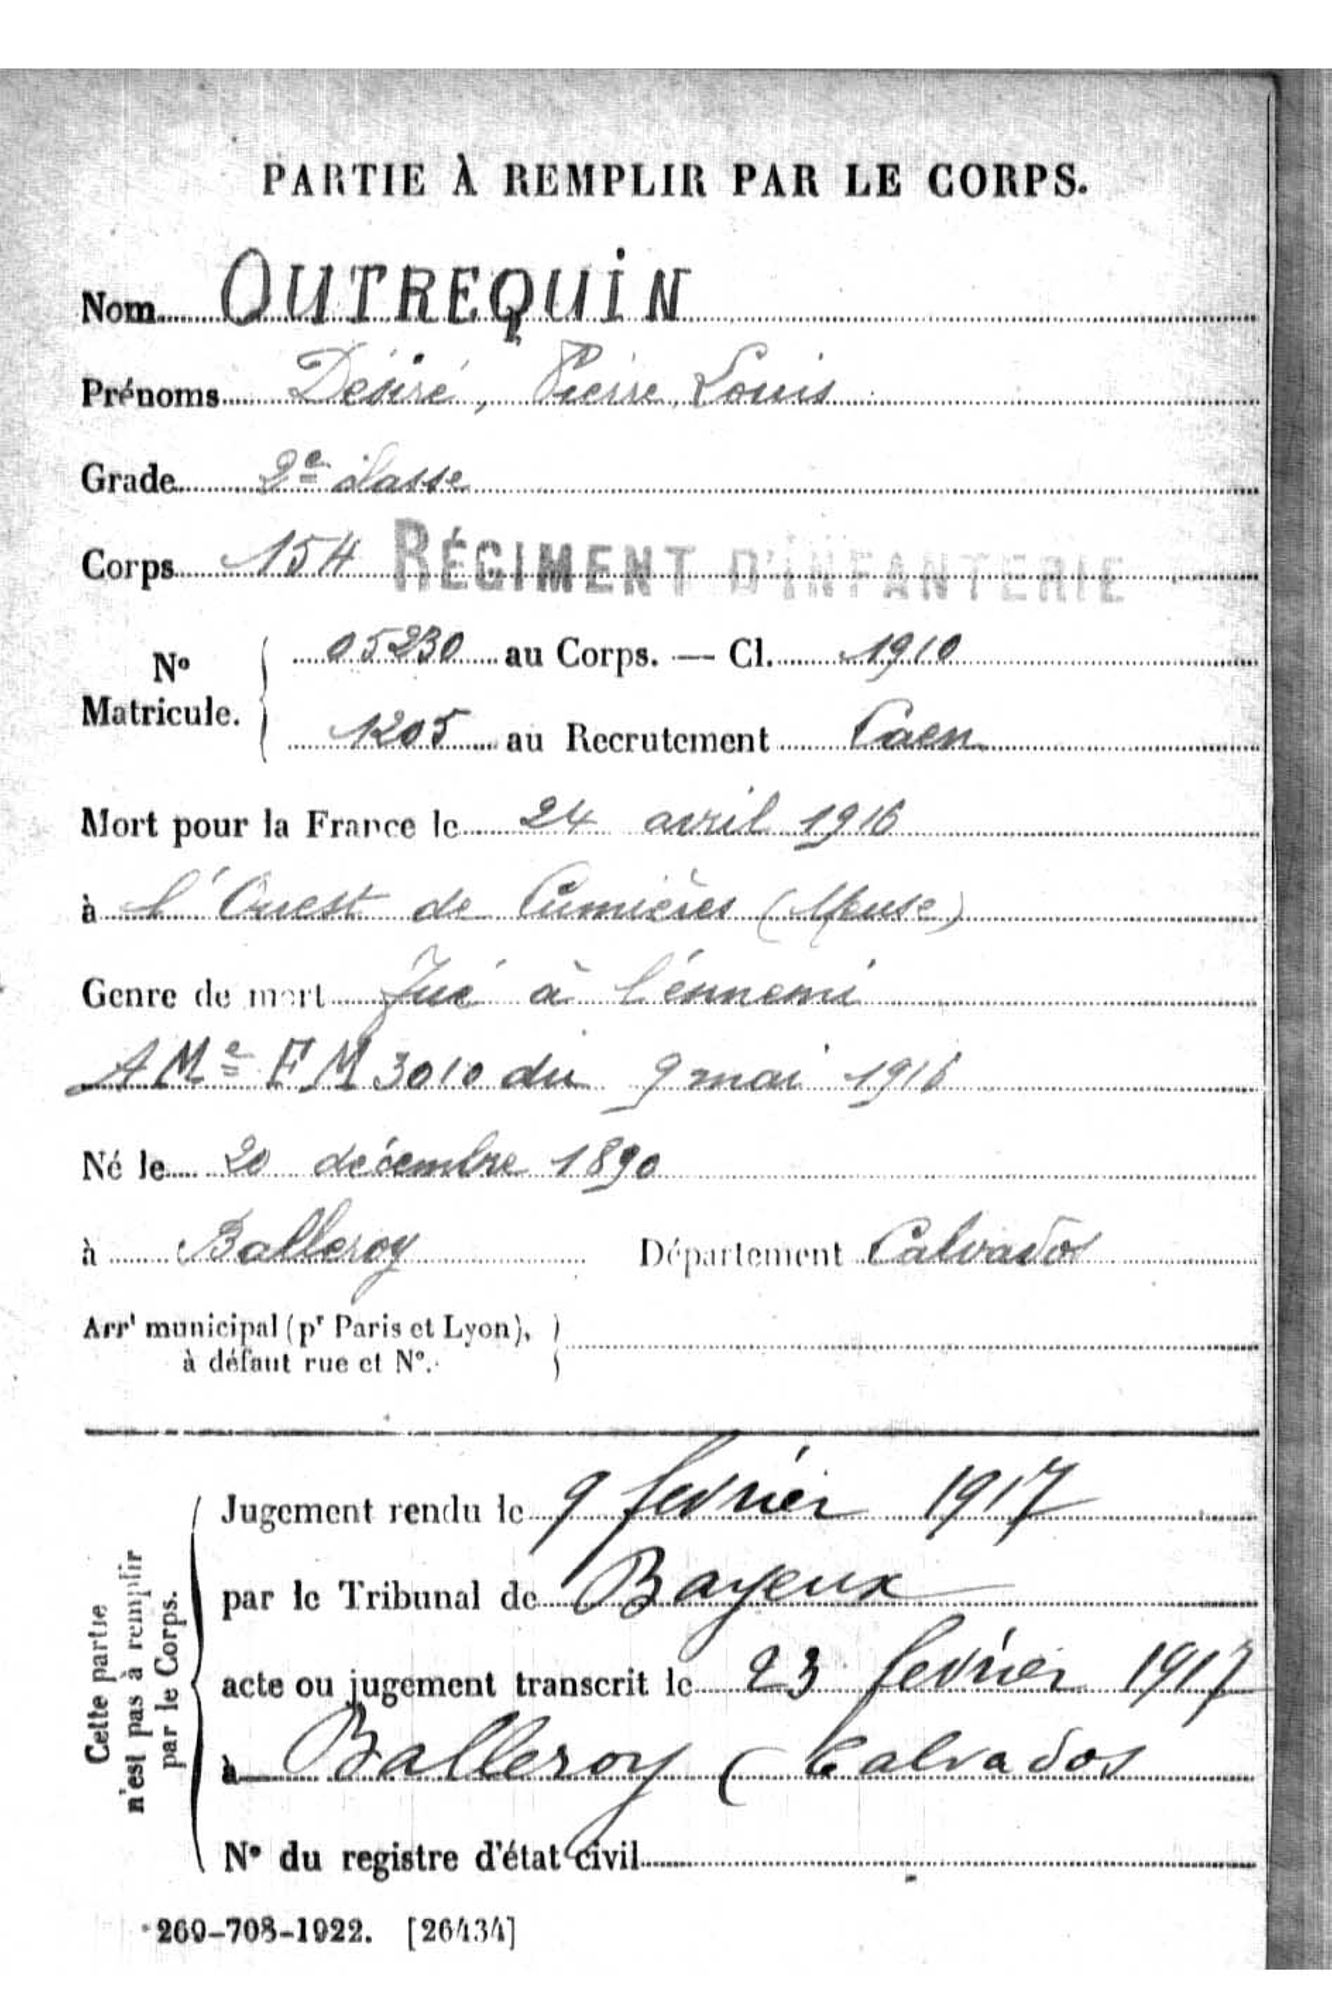 PARTIE À REMPLIR PAR LE CORPS.
Nom OUTREQUIN
Prénoms Désiré, Pierre, Louis
Grade 2e classe
Corps 154 RÉGIMENT D'INFANTERIE
No Matricule. 05230 au Corps. — Cl. 1910
1205 au Recrutement Caen
Mort pour la France le 24 avril 1916
à l'Ouest de Cumières (Meuse)
Genre de mort Tué à l'énnemi
AMe FM 3010 du 9 mai 1916
Né le 20 décembre 1890
à Balleroy Département Calvados
Arrt municipal (pr Paris et Lyon),
à défaut rue et No.
Cette partie
n'est pas à remplir
par le Corps.
Jugement rendu le 9 février 1917
par le Tribunal de Bayeux
acte ou jugement transcrit le 23 février 1917
à Balleroy (Calvados
No du registre d'état civil
269-708-1922. [26434]